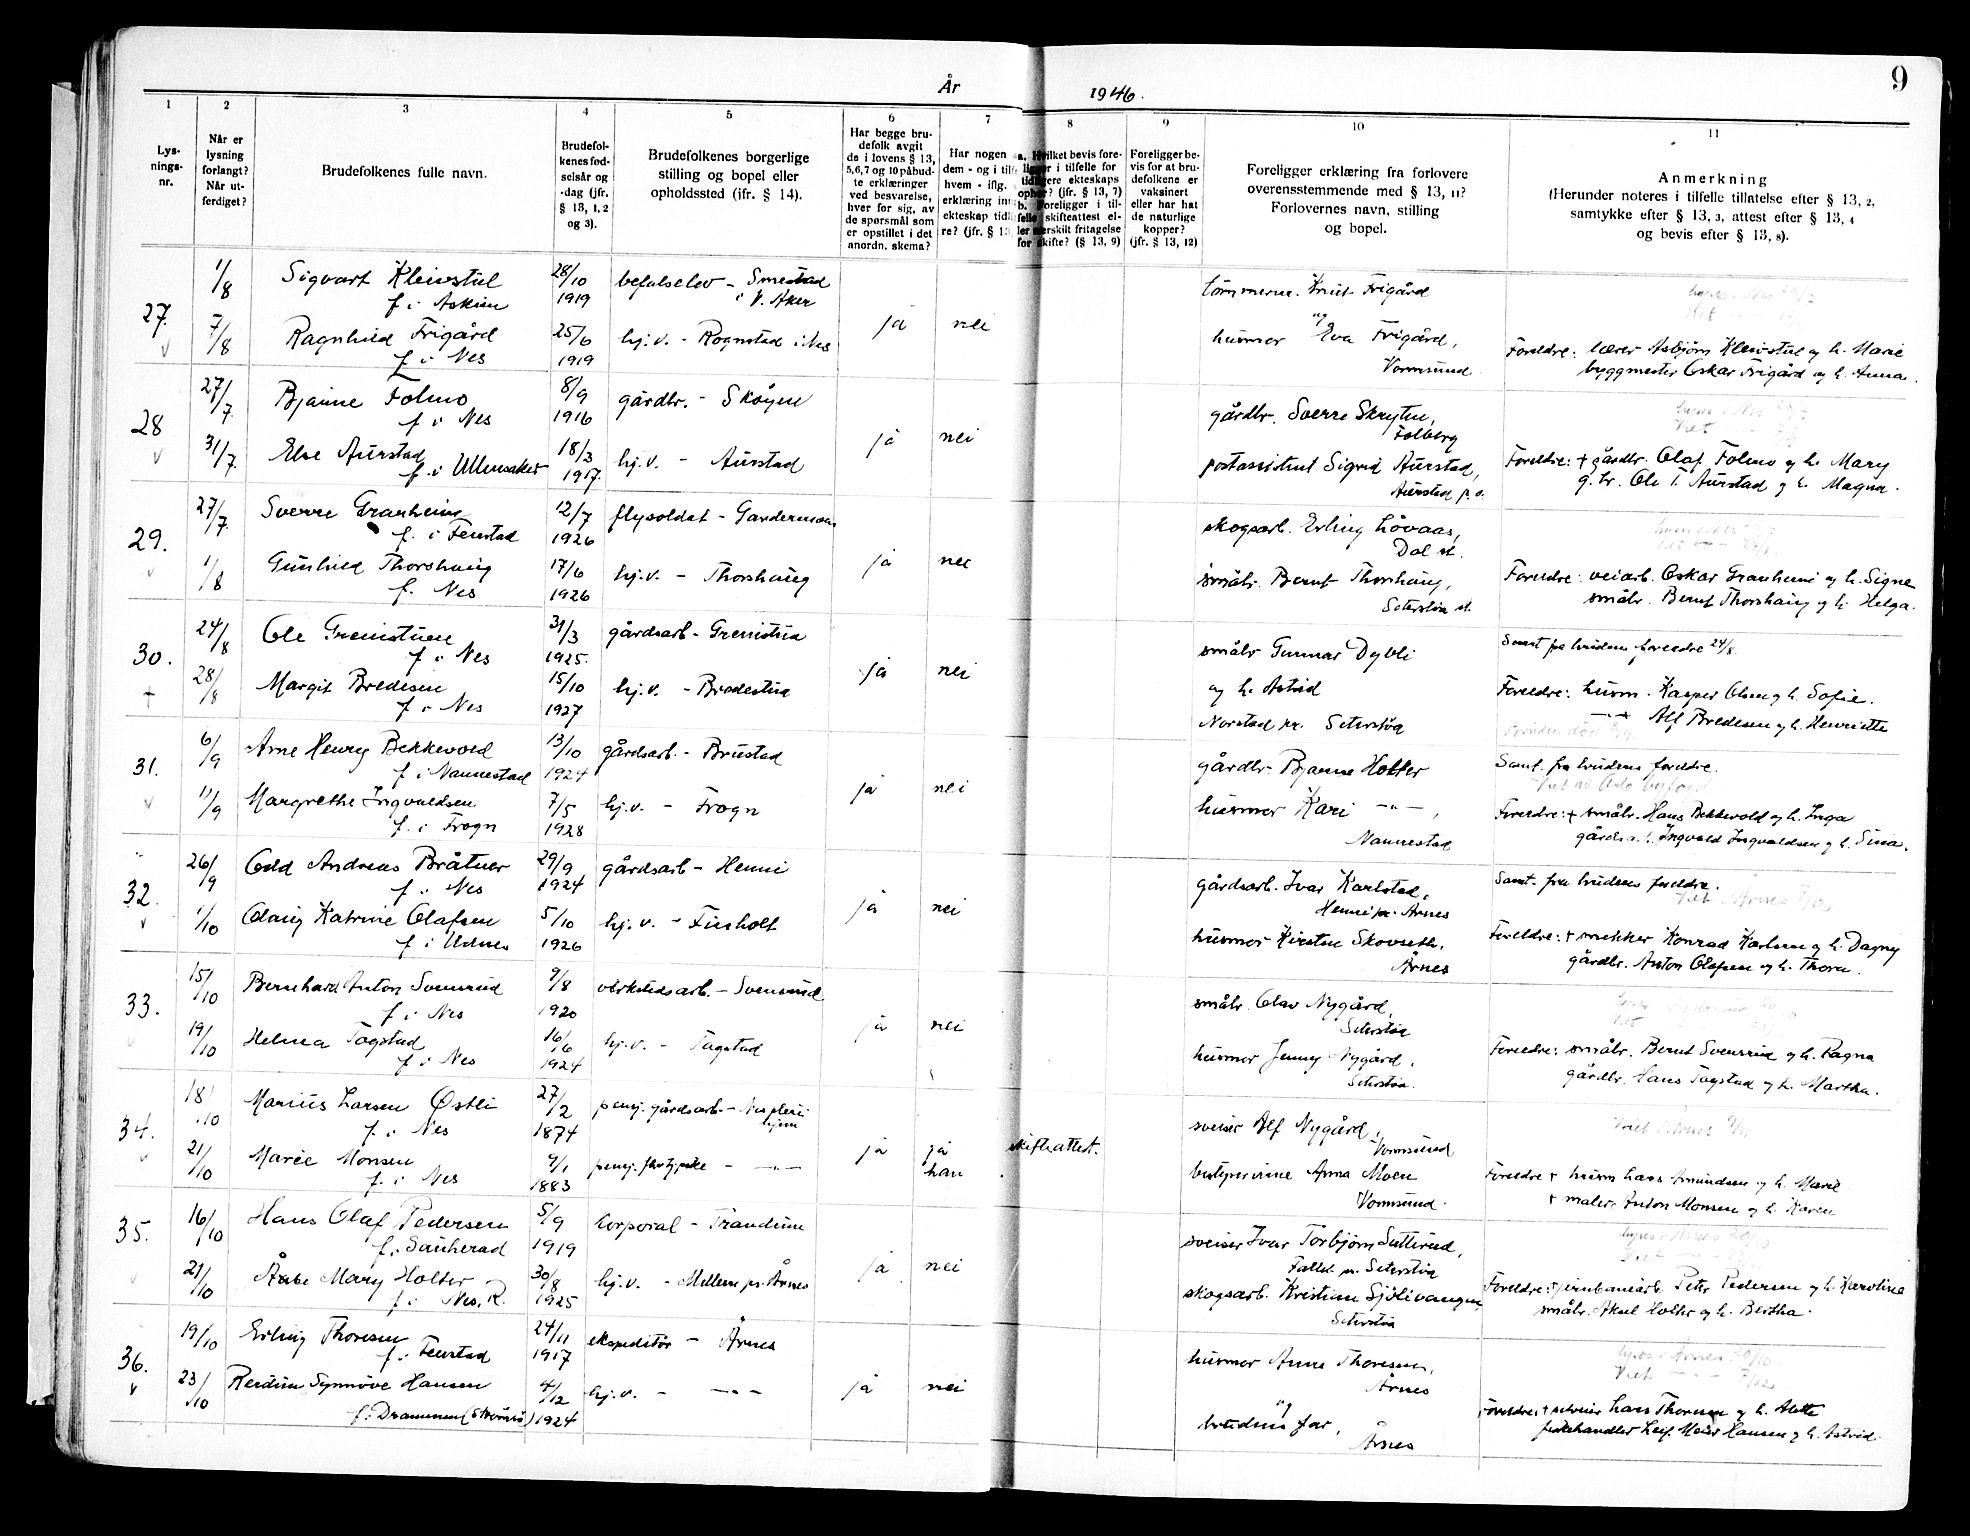 9
År 1946.
1
Lysningsnr.
2
Når er lysning forlangt? Når utferdiget?
3
Brudefolkenes fulle navn.
4
Brudefolkenes fødselsår og -dag (jfr. § 13, 1, 2 og 3).
5
Brudefolkenes borgerlige stilling og bopel eller opholdssted (jfr. § 14).
6
Har begge brudefolk avgitt de i lovens § 13, 5, 6, 7 og 10 påbudte erklæringer ved besvarelse, hver for sig, av de spørsmål som er opstillet i det anordn. skema?
7
Har nogen dem - og i hvem - iflg. erklæring ekteskap tidl re? (jfr. § 13
8
a. Hvilket bevis foreligger i tilfelle for tidligere ekteskaps ophør? (jfr. § 13, 7)
b. Foreligger i tilfelle skifteattest eller særskilt fritagelse for skifte? (§ 13, 9)
9
Foreligger bevis for at brudefolkene er vaksinert eller har hat de naturlige kopper? (jfr. § 13, 12)
10
Foreligger erklæring fra forlovere overensstemmende med § 13, 11? Forlovernes navn, stilling og bopel.
11
Anmerkning
(Herunder noteres i tilfelle tillatelse efter § 13, 2, samtykke efter § 13, 3, attest efter § 13, 4 og bevis efter § 13, 8).
27. 1/8 Sigvart Kleivstul 28/10 befalselev - Smestad tømmerm. Knut Frigård
f i Askim 1919 i V. Aker og
7/8 Ragnhild Frigård 25/6 hj.v. - Rognstad i Nes ja nei husmor Eva Frigård,
f i Nes 1919 Vormsund. Foreldre: lærer Asbjørn Kleivstul og h. Marie
byggmester Oskar Frigård og h. Anna.
28 27/7 Bjarne Folmo 8/9 gårdbr. - Skøyen gårdbr. Sverre Skryten,
f i Nes 1916 Folberg
31/7 Else Aurstad 18/3 hj.v. - Aurstad ja nei postassistent Sigrid Aurstad, Foreldre: + gårdbr. Olaf Folmo og h. Mary
f. i Ullensaker 1917. Aurstad p.o. g.br. Ole T. Aurstad og h. Magna.
29. 27/7 Sverre Granheim 12/7 flysoldat - Gardermoen skogsarb. Erling Løvaas,
f. i Fenstad 1926 Dal st.
1/8 Gunhild Thorshaug 17/6 hj.v. - Thorshaug ja nei småbr. Bernt Thorshaug, Foreldre: veiarb. Oskar Granheim og h. Signe
f. Nes 1926 Seterstøa st. småbr. Bernt Thorshaug og h. Helga.
30. 24/8 Ole Grenistuen 31/3 gårdsarb - Grenistua småbr Gunnar Dybli Samt fra brudens foreldre 24/8.
f i Nes 1925. og h. Astrid
28/8 Margit Bredesen 15/10 hj.v. - Bredestua ja nei Norstad pr. Seterstøa Foreldre: husm. Kasper Olsen og h. Sofie.
f i Nes 1927 Alf Bredesen og h. Henriette
31. 6/9 Arne Henry Bekkevold 13/10 gårdsarb. - Brustad gårdbr. Bjarne Holter Samt. fra brudens foreldre.
f i Nannestad 1924
11/9 Margrethe Ingvaldsen 7/5 hj.v. - Frogn ja nei husmor Kari - " -, Foreldre: + småbr. Hans Bekkevold og h. Inga
f. i Frogn 1928 Nannestad gårdsarb. Ingvald Ingvaldsen og h. Sina.
32. 26/9 Odd Andreas Bråtner 29/9 gårdsarb - Henni gårdsarb. Ivar Karlstad, Samt. fra brudens foreldre.
f. i Nes 1924 Henni pr. Årnes
1/10 Olaug Katrine Olafsen 5/10 hj.v. - Finholt ja nei husmor Kirsten Skovseth, Foreldre: + snekker Konrad Karlsen og h. Dagny
f i Udnes 1926 Årnes gårdbr. Anton Olafsen og h. Thora.
33. 15/10 Bernhard Anton Svensrud 9/8 verkstedsarb. - Svensrud småbr. Olav Nygård,
f i Nes 1920 Seterstøa
19/10 Helma Togstad 16/6 hj.v. - Togstad ja nei husmor Jenny Nygård, Foreldre: småbr. Bernt Svensrud og h. Ragna
f i Nes 1924 Seterstøa. gårdbr. Hans Togstad og h. Martha.
34. 18/10 Marius Larsen Østli 27/2 pensj. gårdsarb - Nes pleiehjem sveiser Alf Nygård,
f. i Nes 1874 Vormsund
21/10 Marie Monsen 9/1 pensj. - " - ja ja han skifteattest. bestyrerinne Anna Moen Foreldre + husm Lars Amundsen og h. Marie
f. i Nes 1883 Vormsund. + maler Anton Monsen og h. Karen
35. 16/10 Hans Olaf Pedersen 5/9 korporal - Trandum sveiser Ivar Torbjørn Sætterud,
f. i Sauherad 1919 Fallet pr. Seterstøa
21/10 Åse Mary Holter 30/8 hj.v. - Mellem pr. Årnes ja nei skogsarb. Kristian Sjølivangen Foreldre: + jernbanearb. Peter Pedersen og h. Karoline
f. i Nes, R. 1925 Seterstøa småbr. Aksel Holter og h. Bertha.
36. 19/10 Erling Thoresen 24/11 ekspeditør - Årnes husmor Anne Thoresen,
f. i Fenstad 1917 Årnes
23/10 Reidun Synnøve Hansen 4/12 hj.v. - - " - ja nei og
f. i Drammen (Strømsø) 1924 brudens far, Foreldre: + sveiser Lars Thoresen og h. Alette
Årnes fiskehandler Leif Meier Hansen og h. Astrid